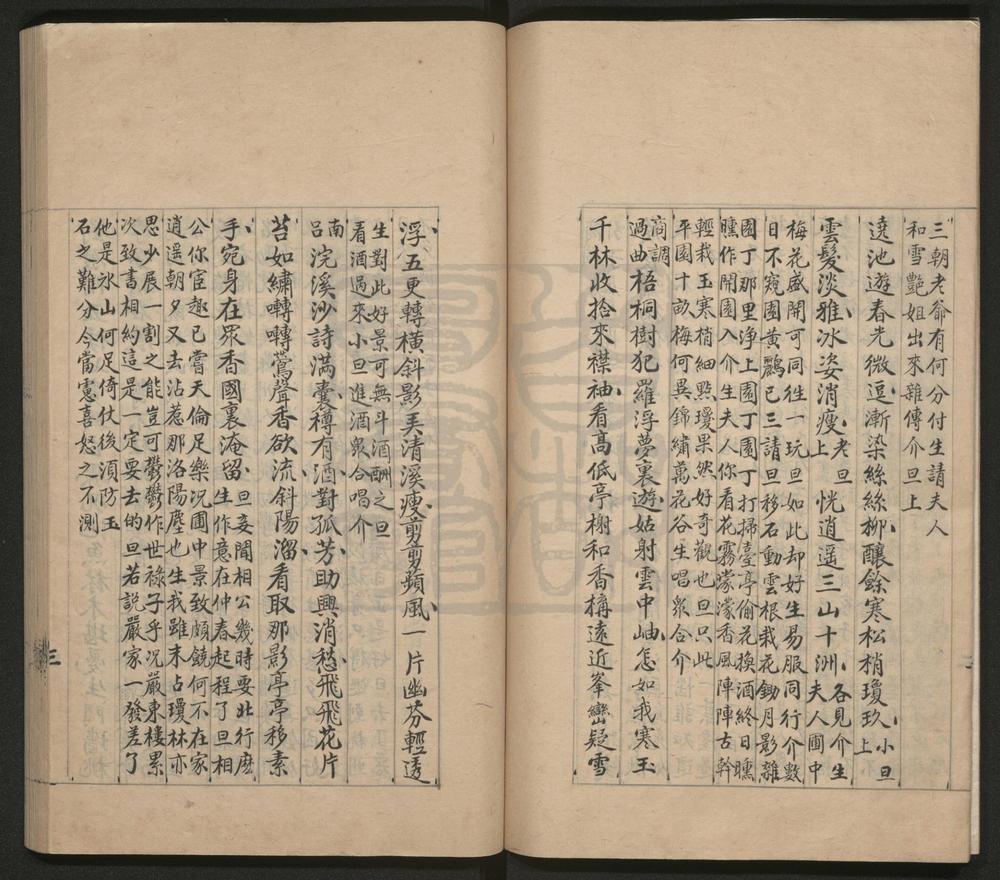 三朝老爺有何分付生請夫人
和雪艷姐出來雜傳介旦上
遶池遊春光微逗漸染絲絲柳釀餘寒松梢瓊玖小旦上
雲髮淡雅冰姿消瘦老旦上恍逍遥三山十洲各見介生夫人圃中
梅花盛開可同徃一玩旦如此却好生易服同行介數
日不窺園黄鸝已三請旦移石動雲根栽花鋤月影雜
園丁那里淨上園丁園丁打掃臺亭偷花換酒終日醺
醺作開園入介生夫人你看花霧濛濛香風陣陣古幹
輕栽玉寒梢細點瓊果然好奇觀也旦只此
平園十畝梅何異錦繡萬花谷生唱衆合介
商調過曲梧桐樹犯羅浮夢裏遊姑射雲中岫怎如我寒玉
千林收拾來襟袖看高低亭榭和香搆遠近峯巒疑雪
浮五更轉橫斜影美清溪瘦剪剪蘋風一片幽芬輕透
生對此好景可無斗酒酬之旦
看酒過來小旦進酒衆合唱介
南吕浣溪沙詩滿囊樽有酒對孤芳助興消愁飛飛花片
苔如繡囀囀鶯聲香欲流斜陽溜看取那影亭亭移素
手宛身在眾香國裏淹留旦妾聞相公幾時要北行麽
生作意在仲春起程了旦相
公你宦趣已嘗天倫足樂况圃中景致頗饒何不在家
逍遥朝夕又去沾惹那洛陽塵也生我雖未占瓊林亦
思少展一割之能豈可欝欝作世祿子乎况嚴東樓累
次致書相約這是一定要去的旦若説嚴家一發差了
他是氷山何足倚仗後湏防玉
石之難分今當慮喜怒之不測
三